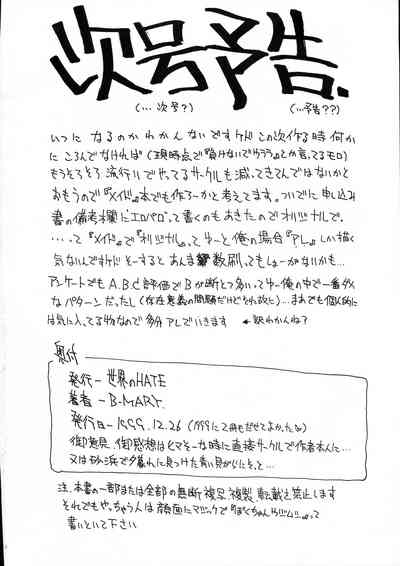 次号予告.
(… 次号?)
(…予告??)
いつに なるのかわかんないですケドこの次作る時 何か
に ころんでなければ (現時点で『負けないでサララ』とか言ってるモロ)
もうそろそろ 流行りでやってるサークルも減ってきてんではないかと
おもうので『メイド』本でも作ろーかと考えてます。ついでに申し込み
書の備考欄にエロパロって書くのもあきたのでオリジナルで。
…って『メイド』で『オリジナル』ってゆーと俺の場合『アレ』しか描く
気ないんですけど そーすると あんま 数刷ってもしょーがないかも…
アンケートでも A.B.C評価で Bが断とつ多いってゆー俺の中で一番
なパターンだったし (存在意義の問題だけどそれ故に)…まあでも個人的に
は気に入ってる物なので多分アレでいきます ←訳わかんね?
奥付
発行ー世界のHATE
著者ーB-MART.
発行日ー1999.12.26 (1999に2冊もだせてよかったな)
御意見、御感想はヒマそーな時に直接サークルで作者本人に…
又は砂浜で夕暮れに見つけた青い貝がらにそっと…
注.本書の一部または全部の無断複写、複製、転載を禁止します
それでもやっちゃう人は顔面にマジックで『ぼくちゃん って
書いといて下さい